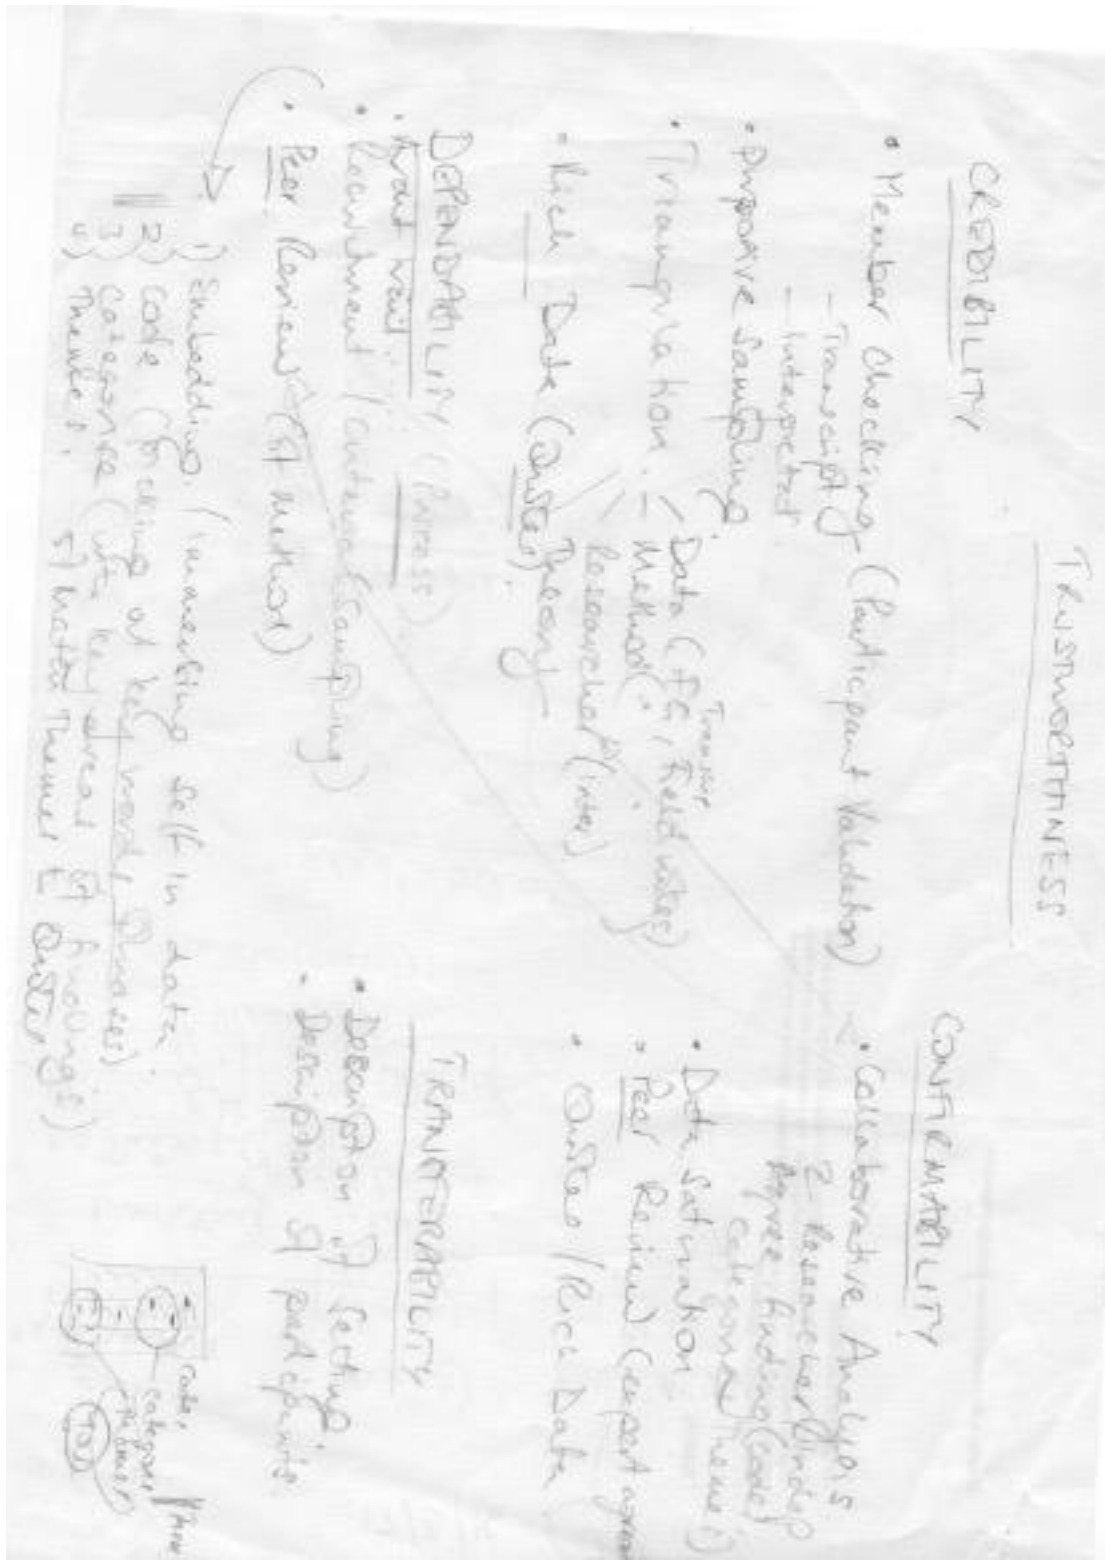 TRUSTWORTHINESS
CREDIBILITY
• Member Checking (Participant Validation)
- Transcript
- Interpreted
• Purposive Sampling
• Triangulation - Data (FG, Field notes)
Transcrip
- Method
Researcher (inter)
Theory
• Rich Data (Quotes)
DEPENDABILITY (Process)
• Audit trail
• Recruitment / (Sampling)
• Peer Review (of Method)
1) Embedding / immersing self in data
2) Code (picking out key words Phrases)
3) Categorise (into key areas of findings)
4) Themes
5) Master Themes Quotes
CONFIRMABILITY
• Collaborative Analysis
2 Researcher
Agree finding (code)
category
• Data Saturation
• Peer Review (expert
• Quotes / Rich Data
TRANSFERABILITY
• Description of Setting
• Description of participants